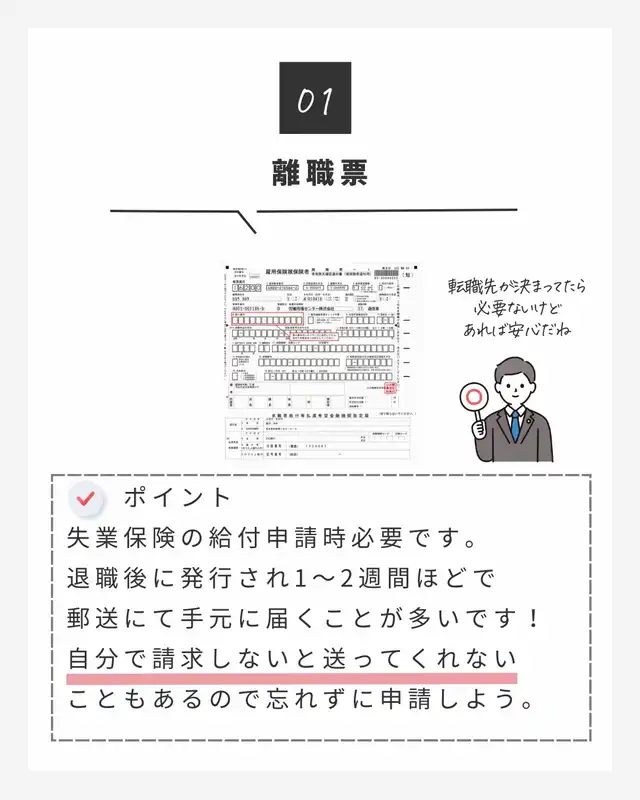 01
離職票
雇用保険被保険者
転職先が決まってたら
必要ないけど
あれば安心だね
ポイント
失業保険の給付申請時必要です。
退職後に発行され1〜2週間ほどで
郵送にて手元に届くことが多いです！
自分で請求しないと送ってくれない
こともあるので忘れずに申請しよう。